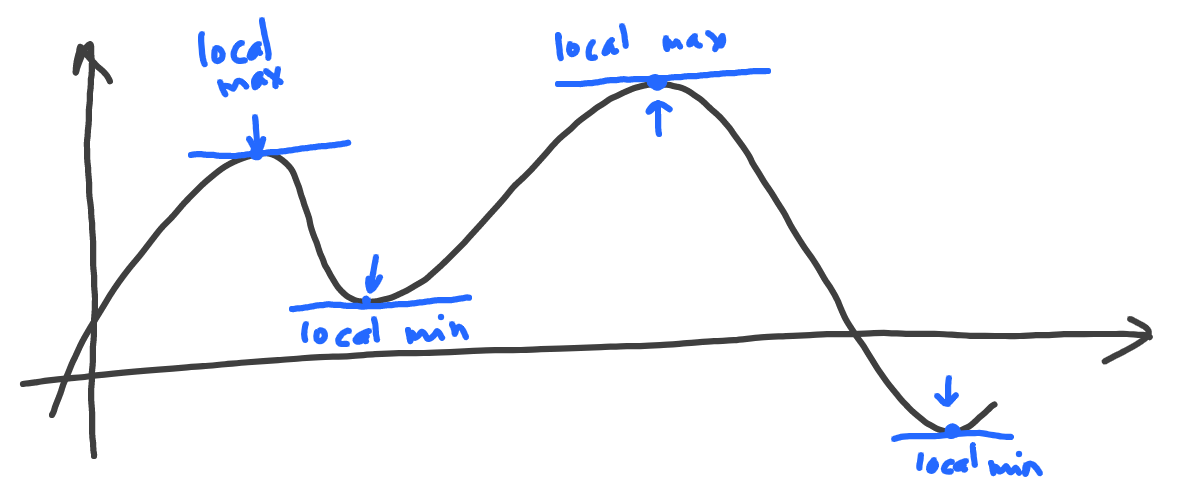 local
max
local max
local min
local min